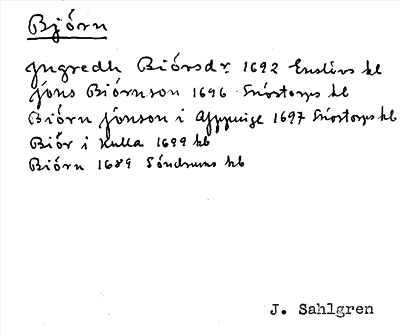 Björn
Jngredh Biörsdr. 1692 Enslövs kb
jöns Biörnson 1696 Snöstorps kb
Biörn jönson i 1697 Snöstorps kb
Biör i Kulla 1699 kb
Biörn 1689 Söndrums kb
J. Sahlgren